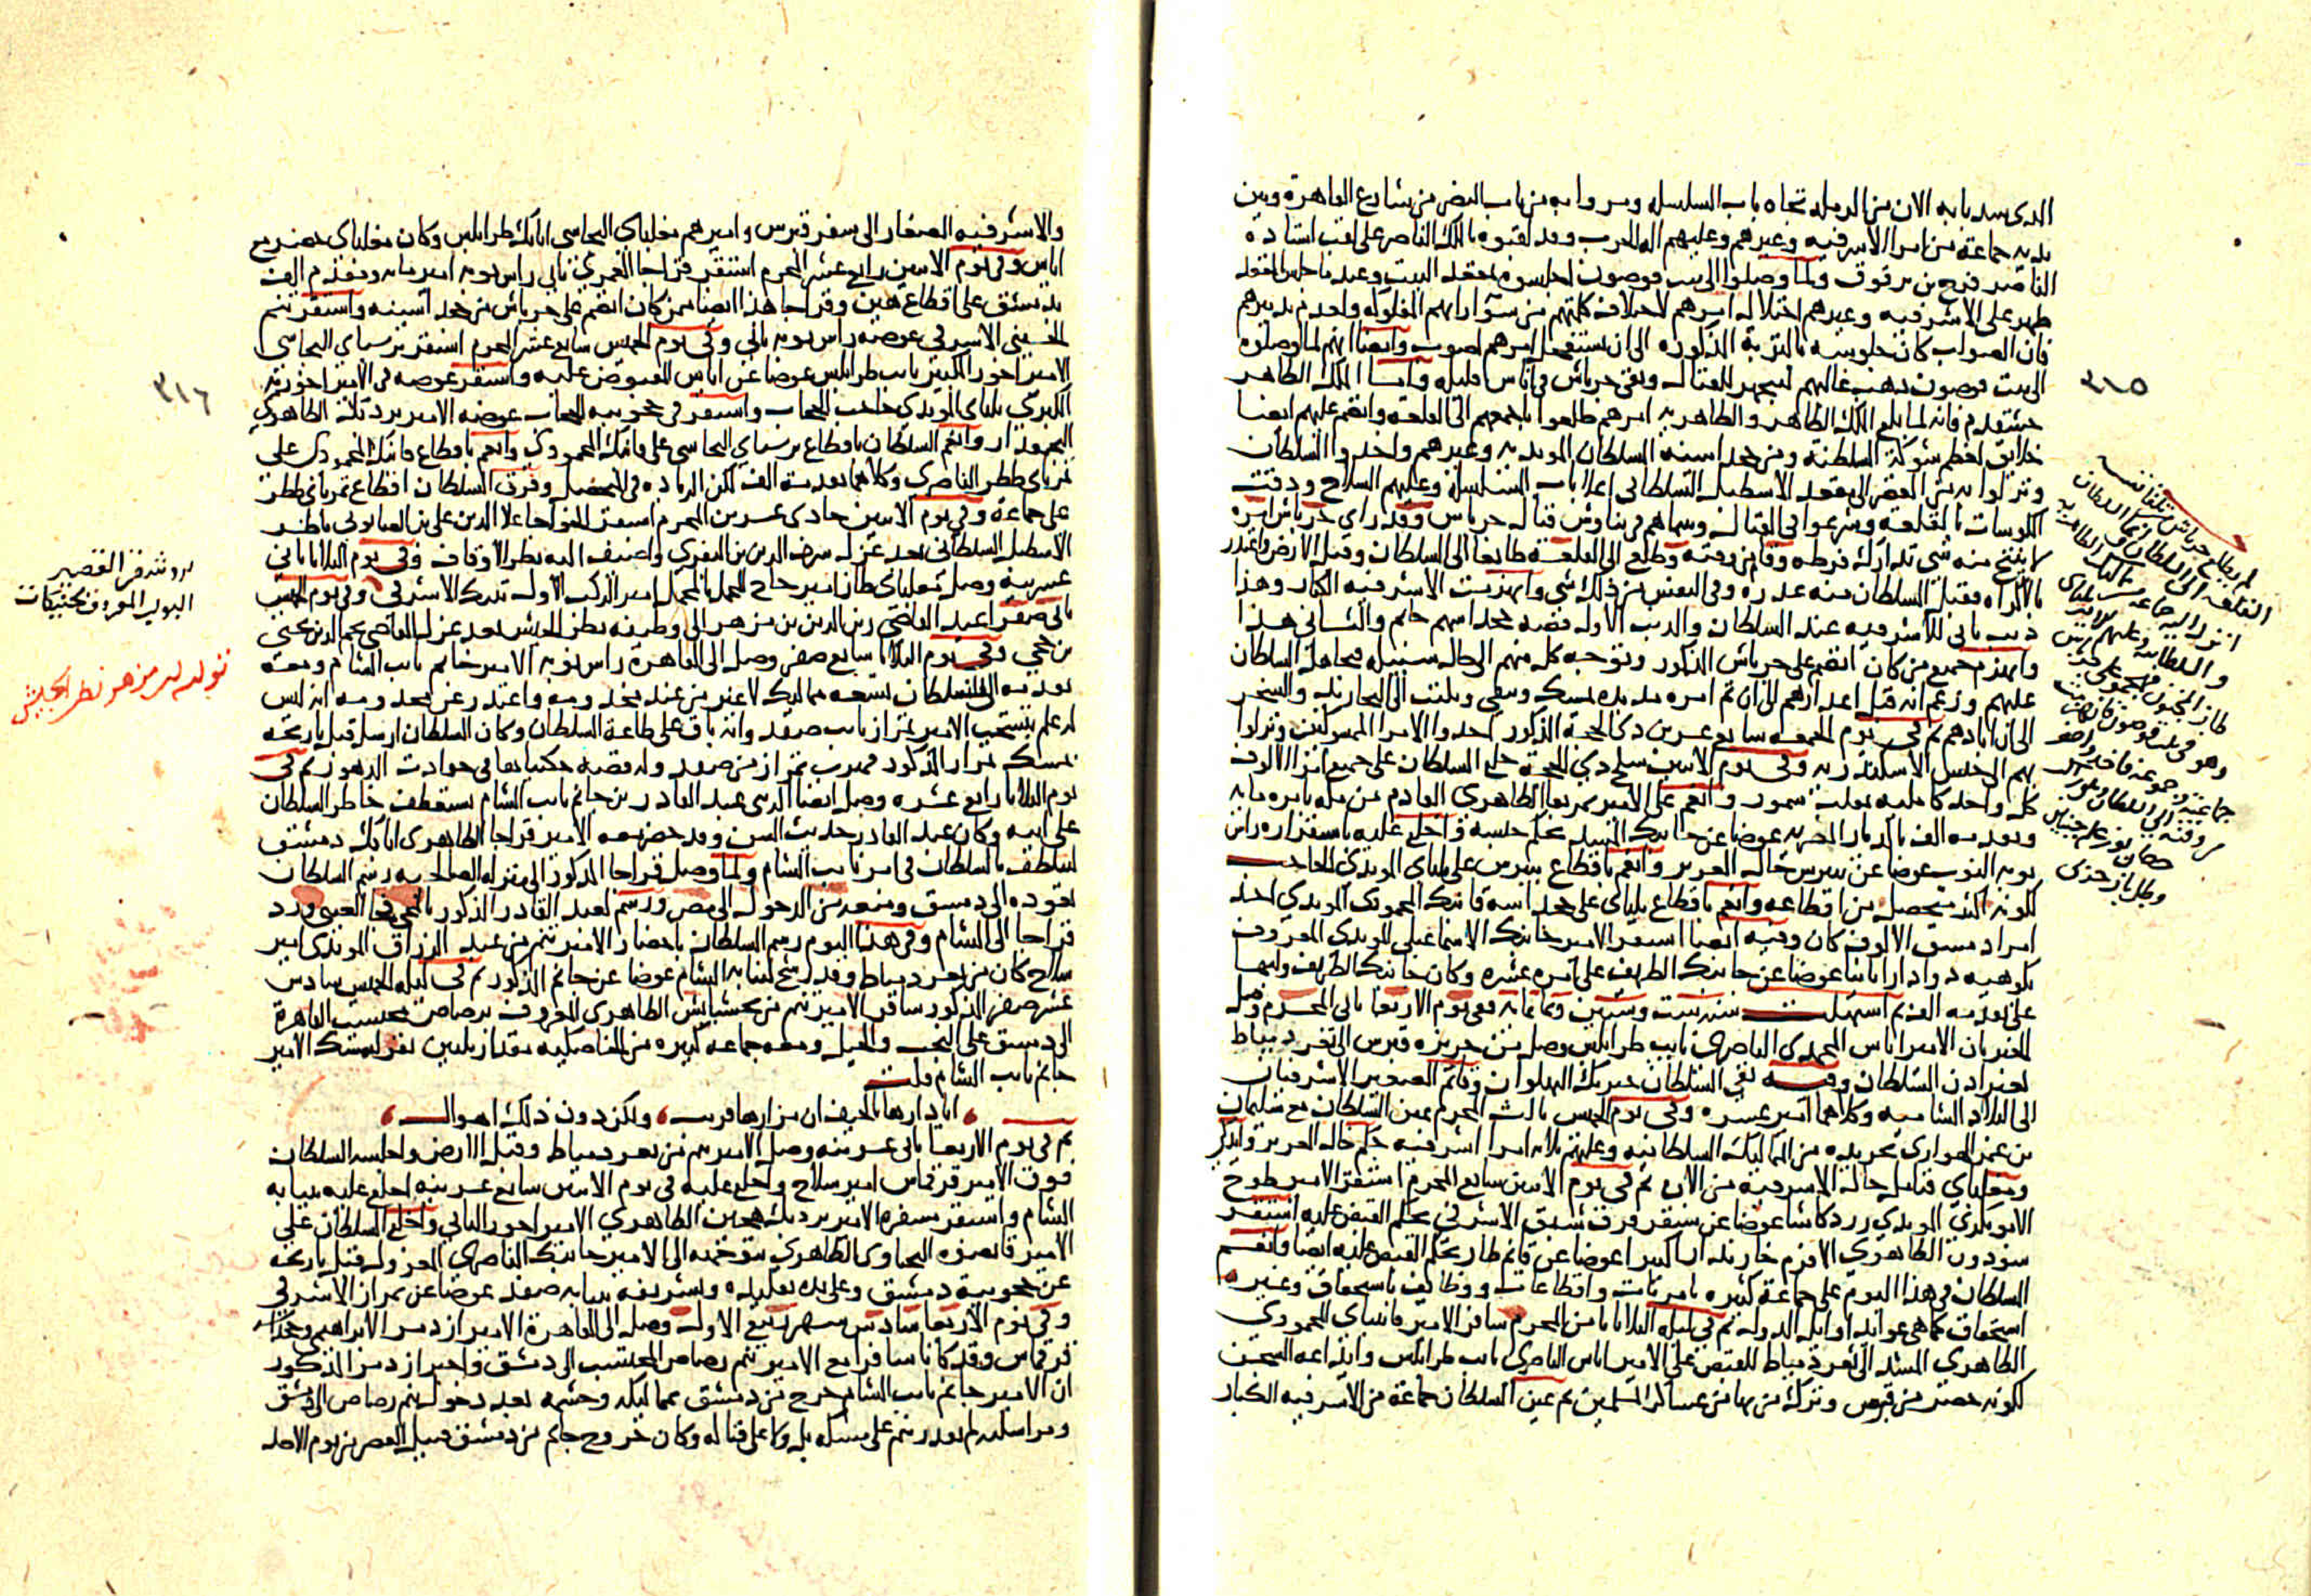 الذي سد بابه الان من الرميلة تجاه باب السلسلة ومروا به من باب النصر من شارع القاهرة وبين
يديه جماعة من امرا الاشرفيه وغيرهم وعليهم الة الحرب وقد لقبوه بالملك الناصر على لقب استاذه
الناصر فرج بن برقوق ولما وصلوا الى بيت قوصون اجلسوه بمقعد البيت وعند ما جلس بالمقعد
ظهر على الاشرفيه وغيرهم اختلال امرهم لاختلاف كلمتهم من سو ارايهم المفلوكة واحدم تدبيرهم
فان الصواب كان جلوسه بالتربة المذكوره الى ان يستفحل امرهم لصوب وايضا انهم لما وصلوه
الى بيت قوصون ذهب غالبهم ليتجهز للقتال وبقي جرباش في اناس قليله واما الملك الظاهر
خشقدم فانه لما بلغ الملك الظاهر والظاهريه امرهم طلعوا باجمعهم الى القلعه وانضم عليهم ايضا
خلايق لعظم شوكة السلطنة ومن جدا سنه السلطان المويديه وغيرهم واخدوا السلطان
ونزلوا به من القصر الى مقعد الاسطبل السلطاني اعلا باب السلسلة وعليهم السلاح ودقت
الكوسات بالقلعه وشرعوا في القتال وبينما هم في تناوش قتال جرباش وقد راي جرباش امره
لا ينتج منه شي تدارك فرطه وقام من وقته وطلع الى القلعة طايعا الى السلطان وقبل الارض واعتدر
بالاكراه فقبل السلطان منه عذره وفي النفس من ذلك شي وانهزمت الاشرفيه الكبار وهذا
ذنب ثاني للاشرفيه عند السلطان والذنب الاول قضيه مجداسهم جانم والثاني هذا
وانهزم جميع من كان انضم على جرباش المذكور وتوجه كل منهم الى حال سبيله فتجاهل السلطان
عليهم وزعم انه قبل اعذارهم الى ان تم امره مد يده لمسك ونفي وبلغت الى المحاربة والسجن
الى ان ابادهم ثم في يوم الجمعه سابع عشرين ذي الحجة المذكور اخدوا الامرا الممسوكين ونزلوا
بهم الى حبس الاسكندريه وفي يوم الاثنين سلخ ذي الحجة خلع السلطان على جميع امرا الالوف
كل واحد كامليه بمقلب سمور وانعم على الامير تمربغا الظاهري القادم من مكه بامره مايه
وتقدمه الف بالديار المصريه عوضا عن جانبك المشد بحكم حبسه واخلع عليه باستقراره راس
نوبه النوب عوضا عن بيبرس خال العزيز وانعم باقطاع بيبرس على يلباي المويدي الحاجب
لكونه اكثر متحصل من اقطاعه وانعم باقطاع يلباي على مجداسه قانبك المحمودي المويدي احد
امرا دمشق الالوف كان وفيه ايضا استقر الامير جانبك الاسماعيلي المويدي المعروف
بكوهيه دوادارا ثانيا عوضا عن جانبك الظريف على امره عشره وكان جانبك الظريف وليها
على تقدمه الف ثم استهلت سنه ست وستين وثمانمايه ففي يوم الاربعا ثاني المحرم وصل
الخبر بان الامير اياس المحمدي الناصري نايب طرابلس وصل من جزيرة قبرس الى ثغر دمياط
بغير اذن السلطان وفيه نفى السلطان خيربك البهلوان وقانم الصغير الاشرفيان
الى البلاد الشاميه وكلاهما امير عشره وفي يوم الخميس ثالث المحرم عين السلطان مع سليمان
بن عمر الهواري تجريده من المماليك السلطانيه وعليهم ثلاثه امرا اشرفيه جكم خال العزيز وايدكي
ومغلباي قتيل خال الاشرفيه من الان ثم في يوم الاثنين سابع المحرم استقر الامير طوخ
الابوبكري المويدي زردكاشا عوضا عن سنقر قرق شبق الاشرفي بحكم القبض عليه واستقر
سودون الظاهري الافرم خازندار كبيرا عوضا عن قانم طاز بحكم القبض عليه ايضا وانعم
السلطان في هذا اليوم على جماعة كثيره بامريات واقطاعات ووظايف باستحقاق وغيره
استحقاق كما هي عوايد اوايل الدوله ثم في ليله الثلاثا ثامن المحرم سافر الامير قانباي المحمودي
الظاهري المشد الى ثغر دمياط للقبض على الامير اياس الناصري نايب طرابلس وايداعه السجن
لكونه حضر من قبرس وترك من بها من عساكر المسلمين ثم عين السلطان جماعة من الاشرفيه الكبار
٣١٥
القلعة الى السلطان
والاشرفيه الصغار الى سفر قبرس واميرهم مغلباي البجاسي اتابك طرابلس وكان مغلباي حضر مع
اياس وفي يوم الاثنين رابع عشر المحرم استقر قراجا العمري ثاني راس نوبه امير مايه ومقدم الف
بدمشق على اقطاع هين وقراجا هذا ايضا ممن كان انضم على جرباش من مجداسينه واستقر تنم
الحسيني الاشرفي عوضه راس نوبه ثاني وفي يوم الخميس سابع عشر المحرم استقر برسباي البجاسي
الامير اخور الكبير نايب طرابلس عوضا عن اياس المقبوض عليه واستقر عوضه في الامير اخوريه
الكبري يلباي المويدي حاجب الحجاب واستقر في حجوبيه الحجاب عوضه الامير بردبك الظاهري
البجمقدار وانعم السلطان باقطاع برسباي البجاسي على قانبك المحمودي وانعم باقطاع قانبك المحمودي على
تمرباي ططر الناصري وكلاهما تقدمه الف لكن الزياده في المتحصل وفرق السلطان اقطاع تمرباي ططر
على جماعة وفي يوم الاثنين حادي عشرين المحرم استقر الخواجا علا الدين علي بن الصابوني ناظر
الاسطبل السلطاني بعد عزل شرف الدين بن البقري واضيف اليه نظر الاوقاف وفي يوم الثلاثا ثاني
عشرينه وصل تنبلباي طاز امير حاج المحمل بالمحمل امير الركب الاول تنبك الاشرفي وفي يوم السبت
ثاني صفر اعيد القاضي زين الدين بن مزهر الى وظيفه نظر الجيش بعد عزل القاضي نجم الدين يحيى
بن حجي وفي يوم الثلاثا سابع صفر وصل الى القاهرة راس نوبه الامير جانم نايب الشام ومعه
تقدمه الى السلطان تسعه مماليك لا غير من عند مخدومه واعتدر عن مخدومه انه ليس
له علم بتسحب الامير تمراز نايب صفد وانه باق على طاعة السلطان وكان السلطان ارسل قبل تاريخه
بمسك تمراز المذكور فهرب تمراز من صفد وله قضيه حكيناها في حوادث الدهور ثم في
يوم الثلاثا رابع عشره وصل ايضا الزيني عبد القادر بن جانم نايب الشام يستعطف خاطر السلطان
على ابيه وكان عبد القادر حديث السن وقد حضر معه الامير قراجا الظاهري اتابك دمشق
ليتلطف بالسلطان في امر نايب الشام ولما وصل قراجا المذكور الى منزله الصالحيه رسم السلطان
بعوده الى دمشق ومنعه من الدخول الى مصر ورسم لعبد القادر المذكور بالمجي ورد
قراجا الى الشام وفي هذا اليوم رسم السلطان باحضار الامير تنم من عبد الرزاق المويدي امير
سلاح كان من ثغر دمياط وقد رشح لنيابه الشام عوضا عن جانم المذكور ثم في ليله الخميس سادس
عشر صفر المذكور سافر الامير تنم من بخشباش الظاهري المعروف برصاص محتسب القاهرة
الى دمشق على النجب والخيل ومعه جماعه كبيره من الخاصكيه مقدار ثلاثين نفر لمسك الامير
جانم نايب الشام قلت
ايا دارها بالخيف ان مزارها قريب ولكن دون ذلك اهوال
ثم في يوم الاربعا ثاني عشرينه وصل الامير تنم من ثغر دمياط وقبل الارض واجلسه السلطان
فوق الامير قرقماس امير سلاح واخلع عليه في يوم الاثنين سابع عشرينه اخلع عليه بنيابه
الشام واستقر مسفره الامير بردبك هجين الظاهري الامير اخور الثاني واخلع السلطان على
الامير قانصوه اليحياوي الظاهري بتوجهه الى الامير جانبك الناصري المعزول قبل تاريخه
عن حجوبية دمشق وعلى يده تقليده وتشريفه بنيابه صفد عوضا عن تمراز الاشرفي
وفي يوم الاربعا سادس شهر ربيع الاول وصل الى القاهرة الامير ازدمر الابراهيمي وجداسه
قرقماس وقد كانا سافرا مع الامير تنم رصاص المحتسب الى دمشق واخبر ازدمر المذكور
ان الامير جانم نايب الشام خرج من دمشق بمماليكه وحشمه بعد دخول تنم رصاص الى دمشق
ومراسلته لم يقدر تنم على مسكه بل ولا على قتاله وكان خروج جانم من دمشق قبيل العصر من يوم الاحد
٣١٦
البولي المعروف بجنيبكات
تولية ابن مزهر نظر الجيش